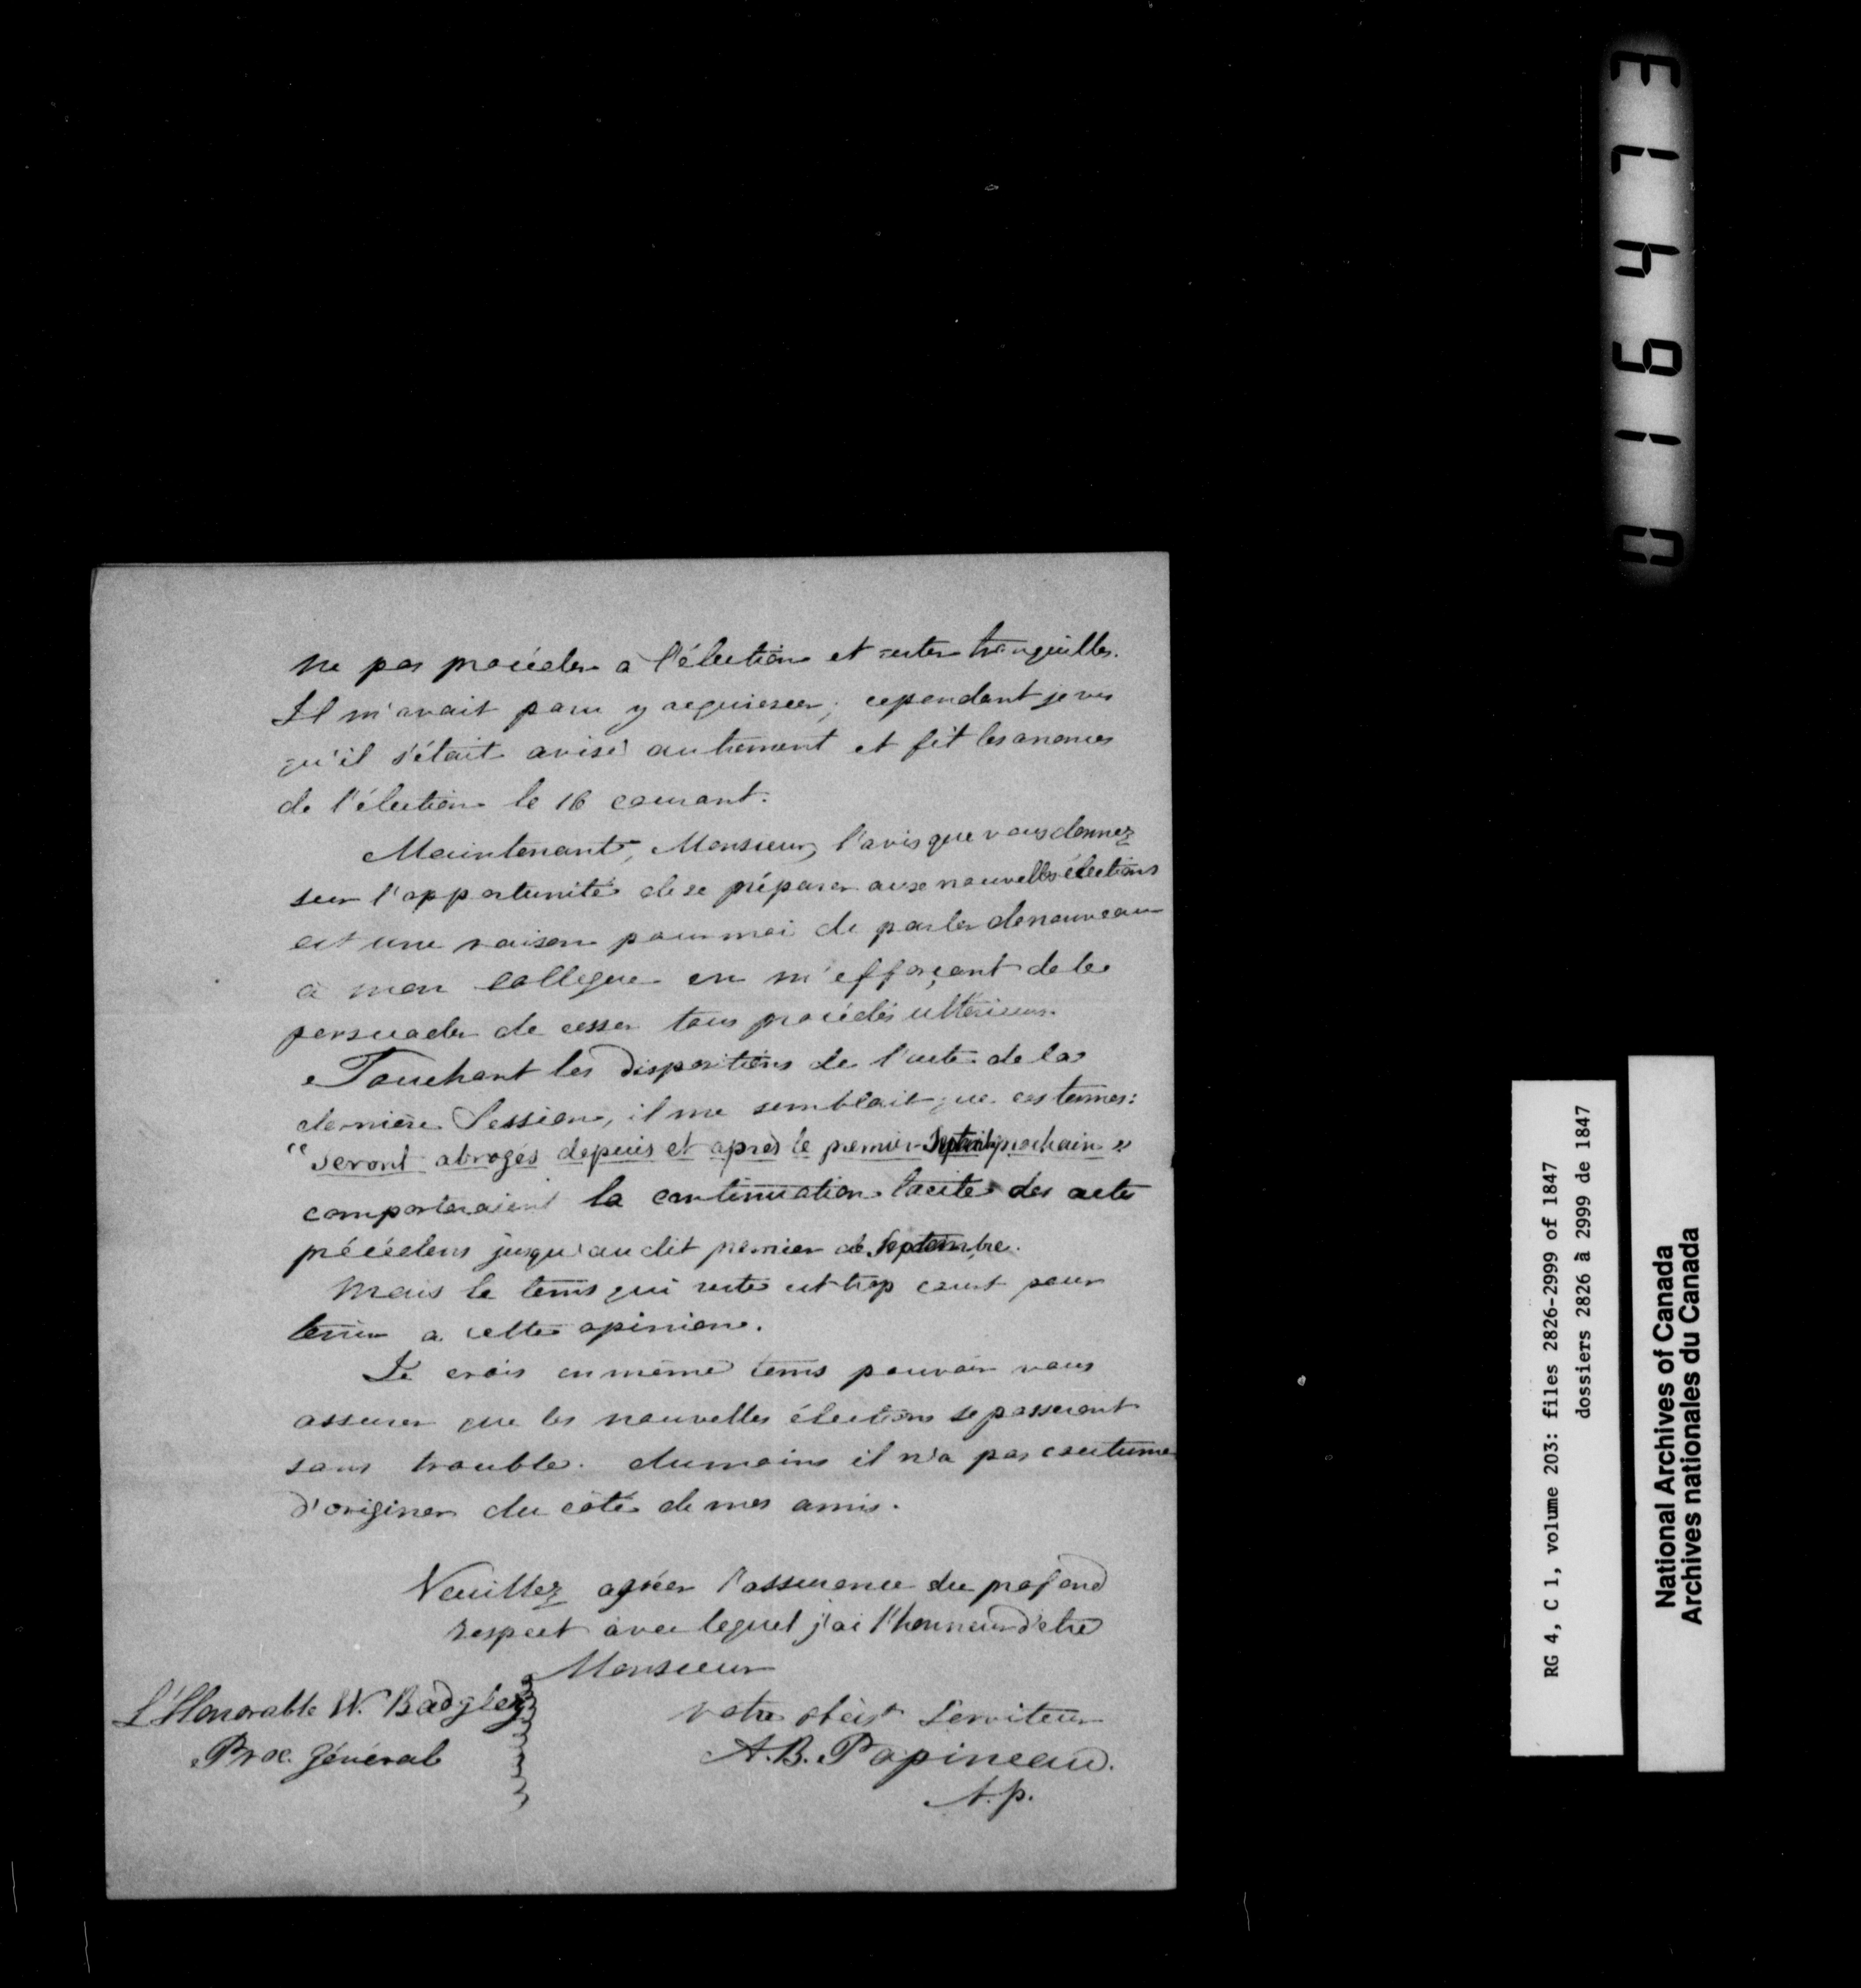 ne pas procéder a l'élection et rester tranquilles.
Il m'avait paru y acquiescer; cependant je vis
qu'il s'était avisé autrement et fit les anonces
de l'élection le 16 courant.
Maintenant, Monsieur, l'avis que vous donnez
sur l'opportunité de se préparer aux nouvelles élections
est une raison pour moi de parler de nouveau
à mon collegue en m'efforçant de le
persuader de cesser tous procédés ultérieurs
Touchant les dispositions de l'acte de la
dernière Session, il me semblait que ces termes:
"seront abrogés depuis et après le premier Septembre prochain"
comporteraient la continuation tacite des actes
précédens jusqu'au dit premier de Septembre.
Mais le tems qui reste est trop court pour
tenir a cette opinion.
Je crois en même tems pouvoir vous
assurer que les nouvelles élections se passeront
sans trouble. du moins il n'a pas coutume
d'originer du coté de mes amis.
Veuillez agréer l'assurance du profond
respect avec lequel j'ai l'honneur d'etre
Monsieur
votre obéist Serviteur
A.B. Papineau.
N.p.
L'Honorable W. Badgley
Proc. Général
016473
RG 4, C 1, volume 203: files 2826-2999 of 1847
dossiers 2826 à 2999 de 1847
National Archives of Canada
Archives nationales du Canada